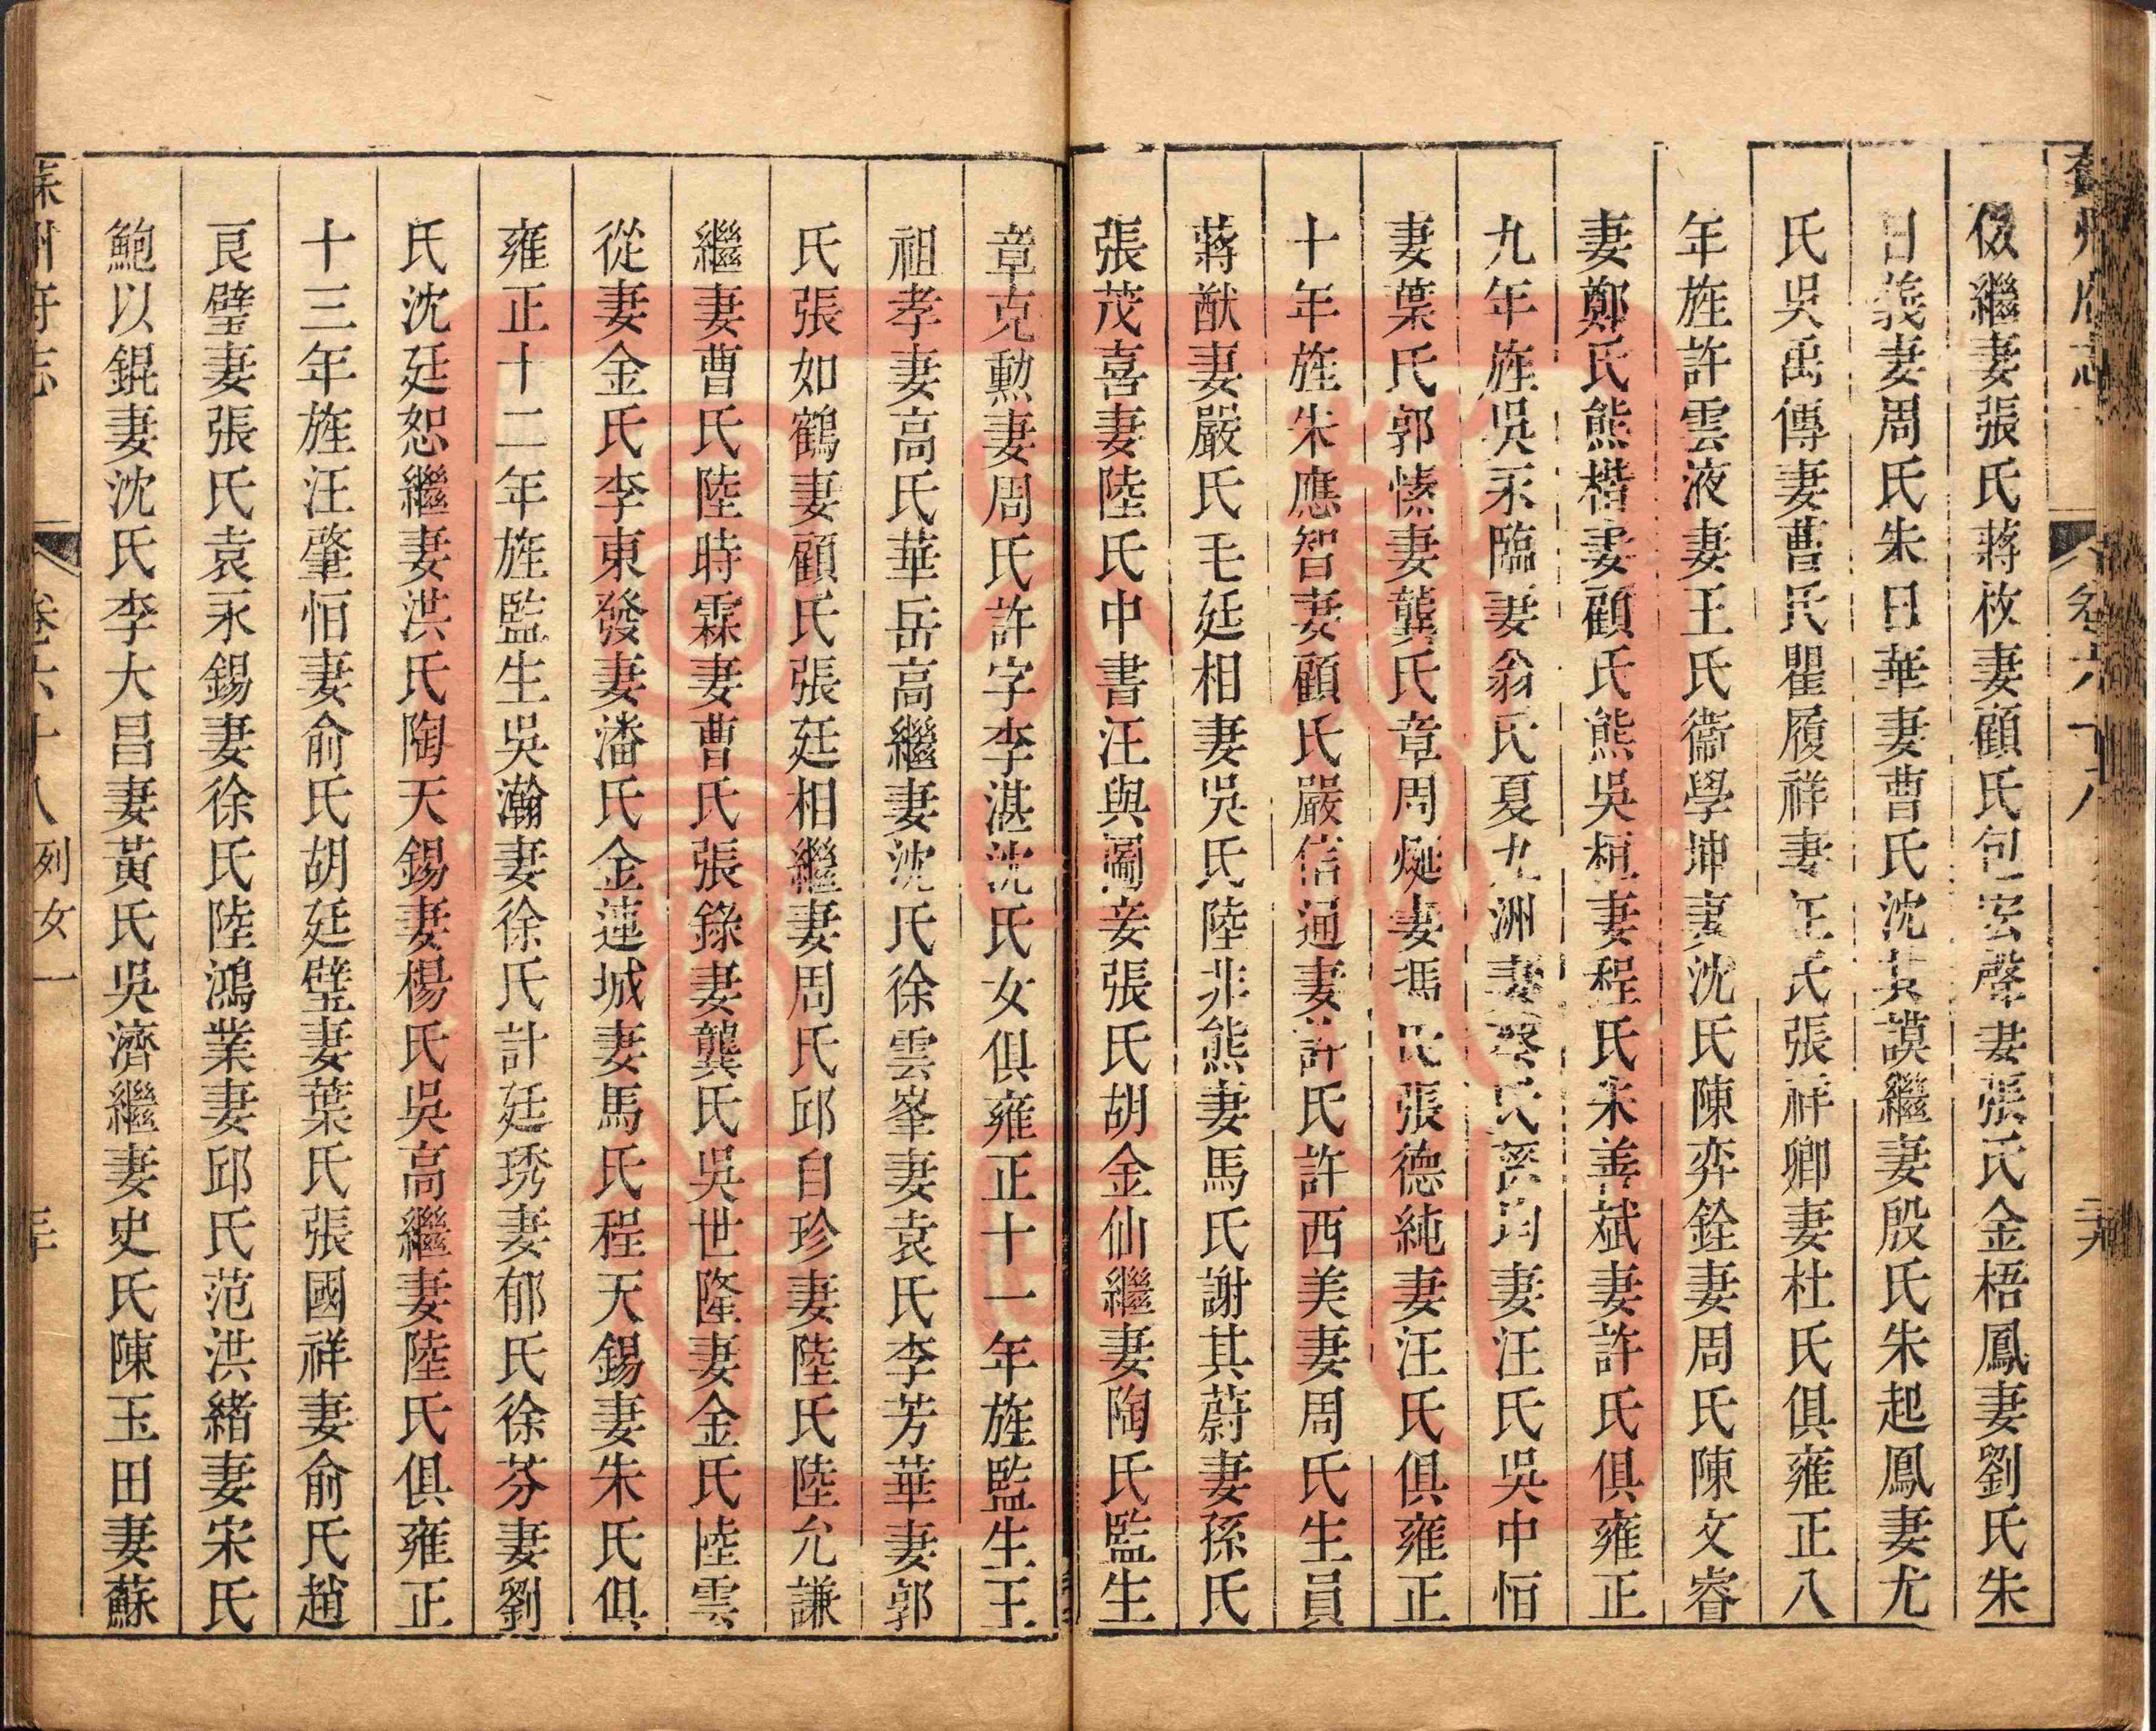 伋繼妻張氏蔣枚妻顧氏包宏聲妻張氏金梧鳳妻劉氏朱
日義妻周氏朱日華妻曹氏沈其謨繼妻殷氏朱起鳳妻尤
氏吳禹傳妻曹氏瞿履祥妻王氏張祥卿妻杜氏俱雍正八
年旌許雲液妻王氏衞學坤妻沈氏陳弈銓妻周氏陳文睿
妻鄭氏熊楷妻顧氏熊吳桓妻程氏朱善斌妻許氏俱雍正
九年旌吳永臨妻翁氏夏九洲妻蔡氏孫均妻汪氏吳中恒
妻葉氏郭愫妻龔氏章周烶妻馮氏張德純妻汪氏俱雍正
十年旌朱應智妻顧氏嚴信通妻許氏許西美妻周氏生員
蔣猷妻嚴氏毛廷相妻吳氏陸非熊妻馬氏謝其蔚妻孫氏
張茂喜妻陸氏中書汪與圖妾張氏胡金仙繼妻陶氏監生
章克勲妻周氏許字李湛沈氏女俱雍正十一年旌監生王
祖孝妻高氏華岳高繼妻沈氏徐雲峯妻袁氏李芳華妻郭
氏張如鶴妻顧氏張廷相繼妻周氏邱自珍妻陸氏陸允謙
繼妻曹氏陸時霖妻曹氏張錄妻龔氏吳世隆妻金氏陸雲
從妻金氏李東發妻潘氏金蓮城妻馬氏程天錫妻朱氏俱
雍正十二年旌監生吳瀚妻徐氏計廷琇妻郁氏徐芬妻劉
氏沈廷恕繼妻洪氏陶天錫妻楊氏吳高繼妻陸氏俱雍正
十三年旌汪肇恒妻俞氏胡廷璧妻葉氏張國祥妻俞氏趙
良璧妻張氏袁永錫妻徐氏陸鴻業妻邱氏范洪緒妻宋氏
鮑以錕妻沈氏李大昌妻黃氏吳濟繼妻史氏陳玉田妻蘇
蘇州府志 卷六十八 列女一 三十